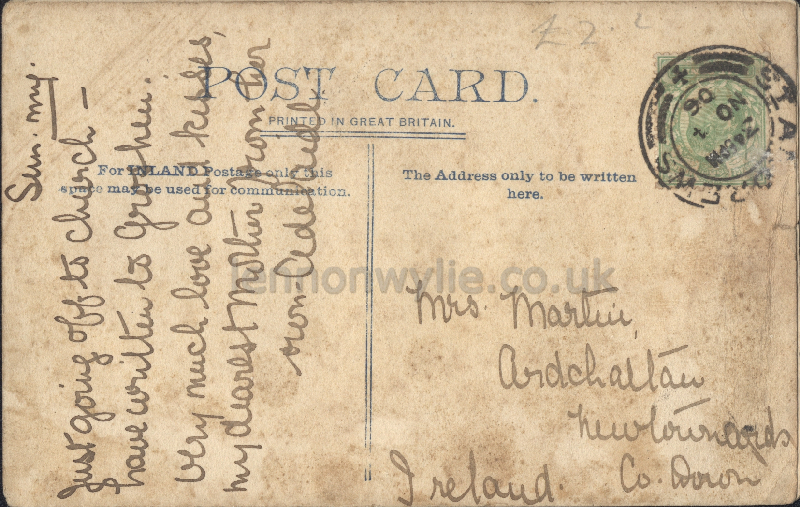 £2
POST CARD.
PRINTED IN GREAT BRITAIN.
For INLAND Postage only this
space may be used for communication.
The Address only to be written
here.
Sun. mg.
Just going off to church —
have written to
Very much love and kisses,
my dearest Mother from her
own Adelaide
Mrs. Martin,
Ardchattan
Newtownards
Co. Down
Ireland.
ST. ANDREWS
NO 4
06
lennonwylie.co.uk